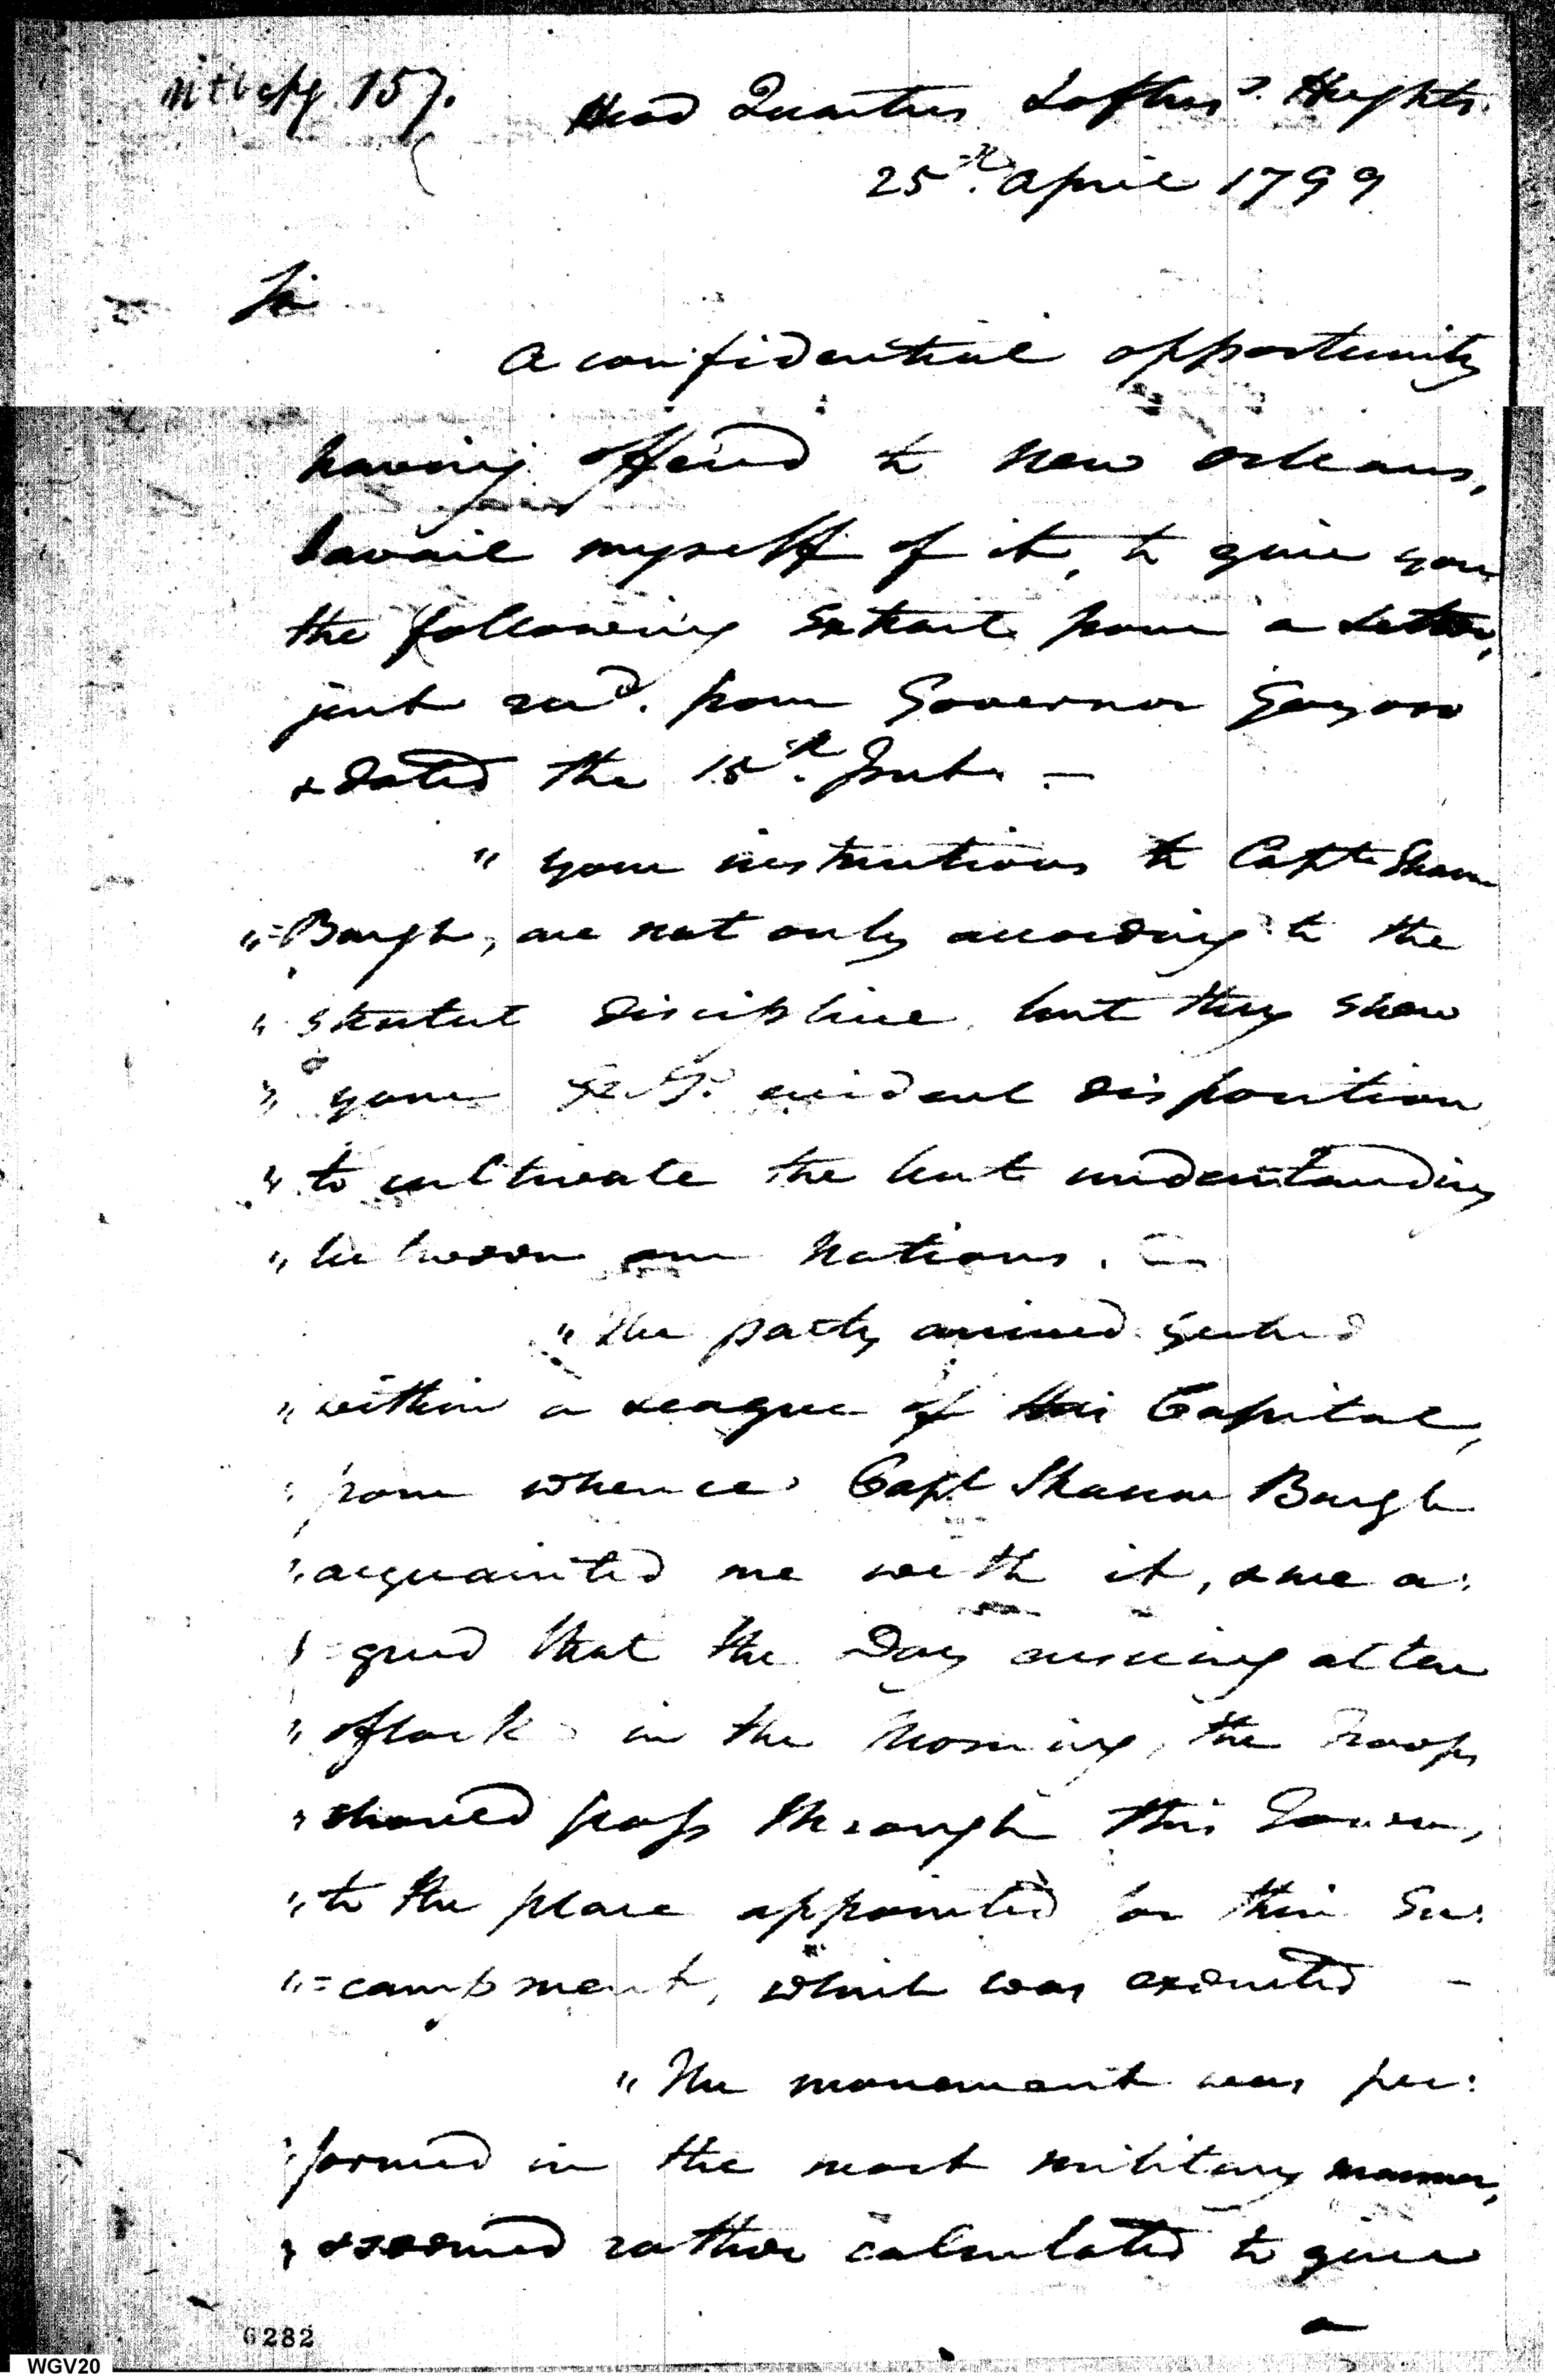 157.
Head Quarters Loftus's Heights
25th. April 1799
Sir
A confidential opportunity
having offered to New Orleans,
I avail myself of it, to give you
the following Extract from a Letter,
just recd. from Governor Gayoso
& dated the 15th. Inst. —
" your instructions to Capt. Sham
"=Burgh, are not only according to the
" strictest discipline, but they show
" your evident disposition
" to cultivate the best understanding
" between our Nations. —
" The party arrived
" within a League of this Capital,
" from whence Capt Sham Burgh
" acquainted me with it, & we a:
" =greed that the Day ensuing at ten
" oClock in the Morning, the Troops
" should pass through this Town,
" to the place appointed for their En:
" =campment, which was executed —
" The movement was per:
" formed in the most military manner,
" & seemed rather calculated to give
a
6282
WGV20